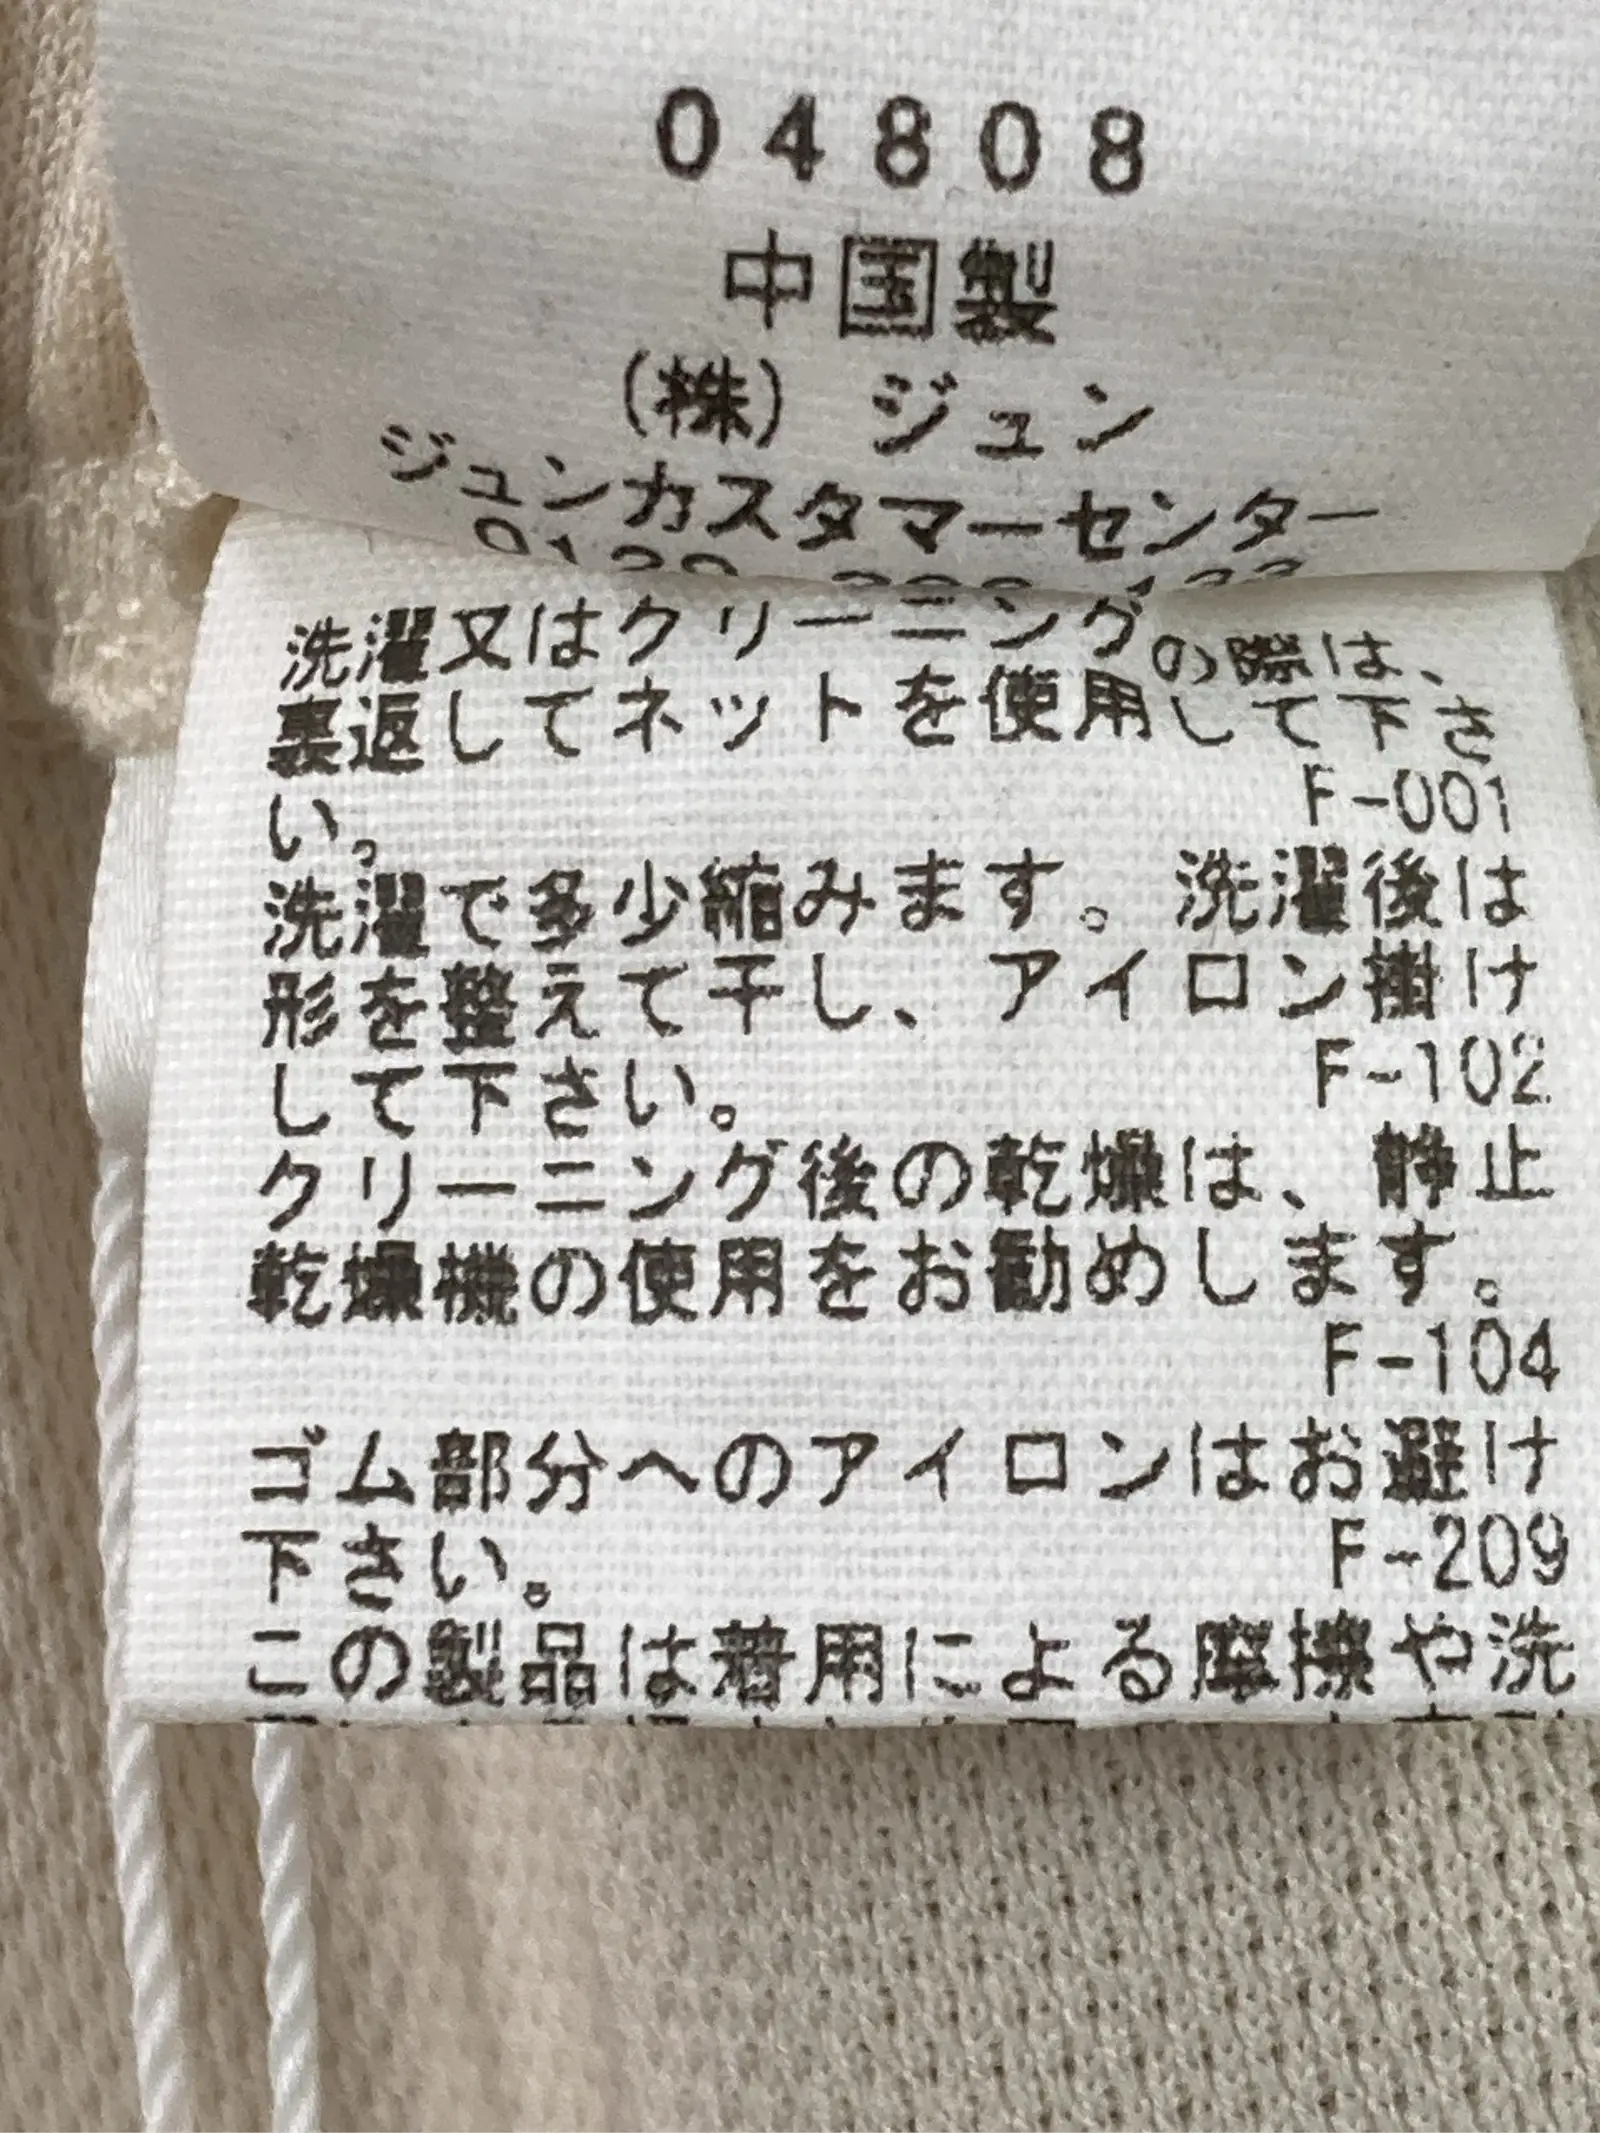 04808
中国製
(株) ジュン
ジュンカスタマーセンター
洗濯又はクリーニングの際は、
裏返してネットを使用して下さ
い。 F-001
洗濯で多少縮みます。洗濯後は
形を整えて干し、アイロン掛け
して下さい。 F-102
クリーニング後の乾燥は、静止
乾燥機の使用をお勧めします。
F-104
ゴム部分へのアイロンはお避け
下さい。 F-209
この製品は着用による摩擦や洗